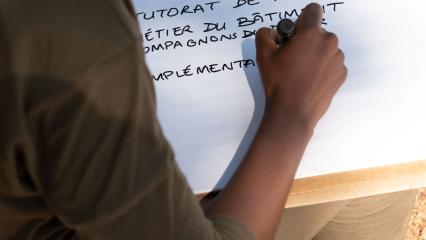 TUTORAT DE
MÉTIER DU BÂTIMENT
COMPAGNONS DU
MPLÉMENTA